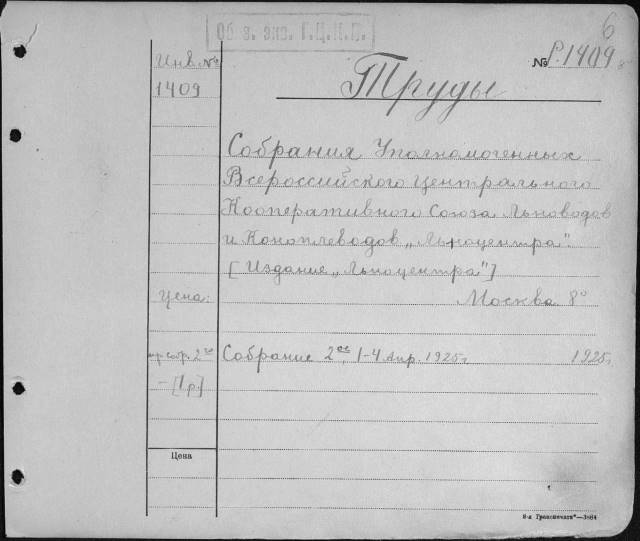 Об. з. экз. Г.Ц.К.П.
6
Инв. №
№ P.1409
1409
Труды
Собрания Уполномоченных
Всероссийского Центрального
Кооперативного Союза Льноводов
и Коноплеводов „Льноцентра".
[Издание „Льноцентра"]
Цена:
Москва 8°
Собрание 2ое, 1-4 Апр. 1925г.
1925г.
- [1 р.]
Цена